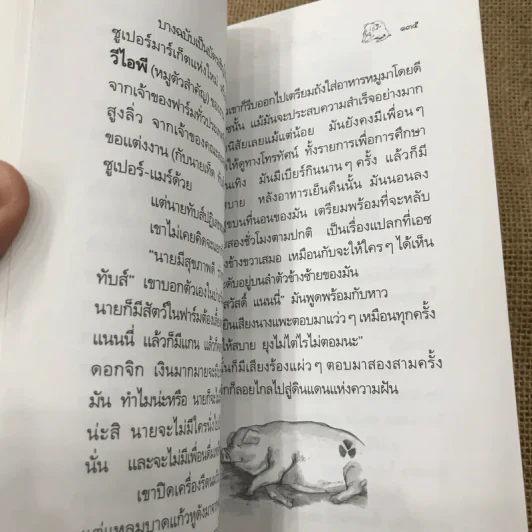 บางฉบับเป็นบัตร
ซูเปอร์มาร์เก็ตแห่งใหม่
วีไอพี (หมูตัวสำคัญ)
จากเจ้าของฟาร์มทั่วประเทศ
สูงลิ่ว จากเจ้าของคณะ
ขอแต่งงาน (กับนายเท็ด
ซูเปอร์-แมร์ด้วย
แต่นายทับส์ปฏิเสธ
เขาไม่เคยคิดจะ
"นายมีสุขภาพดี
ทับส์" เขาบอกตัวเอง
นายก็มีสัตว์ในฟาร์มต้อง
แนนนี่ แล้วก็มีแกน แล้วก็
ดอกจิก เงินมากมายจะ
มัน ทำไมน่ะหรือ นายก็จะ
น่ะสิ นายจะไม่มีใครนั่ง
นั่น และจะไม่มีเพื่อนดื่ม
เขาปิดเครื่องรีด
แต่แหลมบาดแก้วหูดังมา
๑๓๕
เขาก็รีบออกไปเตรียมถังใส่อาหารหมูมาโดยดี
ขนั้น แม้มันจะประสบความสำเร็จอย่างมาก
นิสัยเลยแม้แต่น้อย มันยังคงมีเพื่อนๆ
ให้ดูทางโทรทัศน์ ทั้งรายการเพื่อการศึกษา
นเทิง มันมีเบียร์กินนานๆ ครั้ง แล้วก็มี
บาย หลังอาหารเย็นคืนนั้น มันนอนลง
ขบนที่นอนของมัน เตรียมพร้อมที่จะหลับ
สองชั่วโมงตามปกติ เป็นเรื่องแปลกที่เอซ
ข้างขวาเสมอ เหมือนกับจะให้ใครๆ ได้เห็น
ดับอยู่บนลำตัวข้างซ้ายของมัน
สวัสดิ์ แนนนี่" มันพูดพร้อมกับหาว
ยินเสียงนางแพะตอบมาแว่วๆ เหมือนทุกครั้ง
ให้สบาย ยุงไม่ไต่ไรไม่ตอมนะ"
นก็มีเสียงร้องแผ่วๆ ตอบมาสองสามครั้ง
ก็ลอยไกลไปสู่ดินแดนแห่งความฝัน